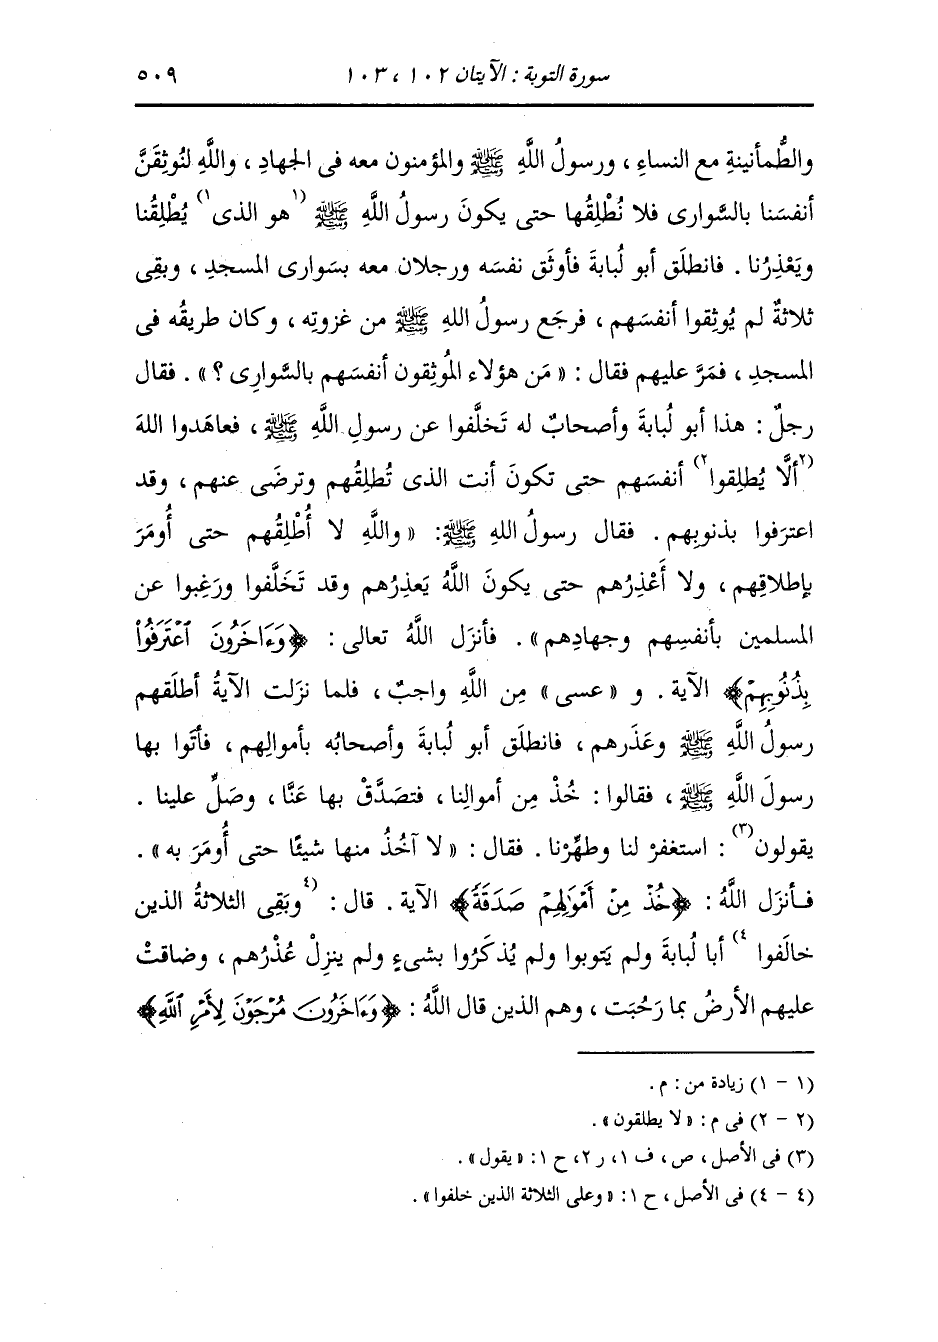 سورة التوبة : الآيتان ١٠٢ ، ١٠٣ ٥٠٩
والطُّمأنينةِ مع النساءِ ، ورسولُ اللَّهِ ﷺ والمؤمنون معه فى الجهادِ ، واللَّهِ لنُوثِقَنَّ
أنفسَنا بالسَّوارى فلا نُطْلِقُها حتى يكونَ رسولُ اللَّهِ ﷺ (١ هو الذى ١) يُطْلِقُنا
ويَعْذِرُنا . فانطلَق أبو لُبابةَ فأوثَق نفسَه ورجلان معه بسَوارى المسجدِ ، وبقِى
ثلاثةٌ لم يُوثِقوا أنفسَهم ، فرجَع رسولُ اللهِ ﷺ من غزوتِه ، وكان طريقُه فى
المسجدِ ، فمَرَّ عليهم فقال : « مَن هؤلاء المُوثِقون أنفسَهم بالسَّوارِى ؟ » . فقال
رجلٌ : هذا أبو لُبابةَ وأصحابٌ له تَخلَّفوا عن رسولِ اللَّهِ ﷺ ، فعاهَدوا اللهَ
(٢ ألَّا يُطلِقوا ٢) أنفسَهم حتى تكونَ أنت الذى تُطلِقُهم وترضَى عنهم ، وقد
اعترَفوا بذنوبِهم . فقال رسولُ اللهِ ﷺ : « واللَّهِ لا أُطْلِقُهم حتى أُومَرَ
بإطلاقِهم ، ولا أَعْذِرُهم حتى يكونَ اللَّهُ يَعذِرُهم وقد تَخَلَّفوا ورَغِبوا عن
المسلمين بأنفسِهم وجهادِهم » . فأنزَل اللَّهُ تعالى : ﴿وَءَاخَرُونَ ٱعْتَرَفُوا۟
بِذُنُوبِهِمْ﴾ الآية . و « عسى » مِن اللَّهِ واجبٌ ، فلما نزَلت الآيةُ أطلَقهم
رسولُ اللَّهِ ﷺ وعذَرهم ، فانطلَق أبو لُبابةَ وأصحابُه بأموالِهم ، فأتَوا بها
رسولَ اللَّهِ ﷺ ، فقالوا : خُذْ مِن أموالِنا ، فتصَدَّقْ بها عَنَّا ، وصَلِّ علينا .
يقولون (٣) : استغفرْ لنا وطهِّرْنا . فقال : « لا آخُذُ منها شيئًا حتى أُومَرَ به » .
فأنزَل اللَّهُ : ﴿خُذْ مِنْ أَمْوَٰلِهِمْ صَدَقَةً﴾ الآية . قال : (٤ وبَقِى الثلاثةُ الذين
خالَفوا ٤) أبا لُبابةَ ولم يَتوبوا ولم يُذكَرُوا بشىءٍ ولم ينزِلْ عُذْرُهم ، وضاقتْ
عليهم الأرضُ بما رَحُبَت ، وهم الذين قال اللَّهُ : ﴿وَءَاخَرُونَ مُرْجَوْنَ لِأَمْرِ ٱللَّهِ﴾
(١ - ١) زيادة من : م .
(٢ - ٢) فى م : « لا يطلقون » .
(٣) فى الأصل ، ص ، ف ١ ، ر ٢ ، ح ١ : « يقول » .
(٤ - ٤) فى الأصل ، ح ١ : « وعلى الثلاثة الذين خلفوا » .